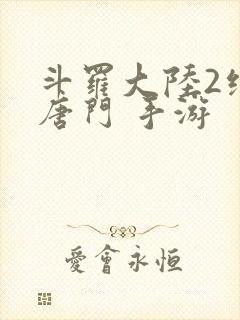 斗羅大陸2絕
唐門 手游
愛會永恒